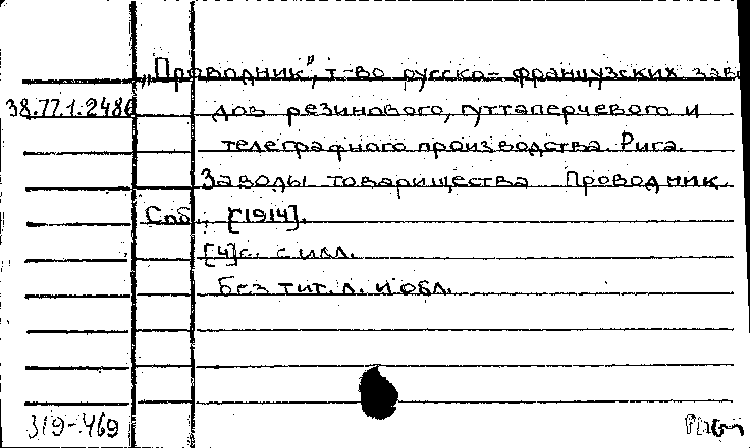 „Проводник", т-во русско-французских заво
38.77.1.2486 дов резинового, гуттаперчевого и
телеграфного производства. Рига.
Заводы товарищества Проводник.
Спб., [1914].
[4]с. с илл.
Без тит. л. и обл.
319-469